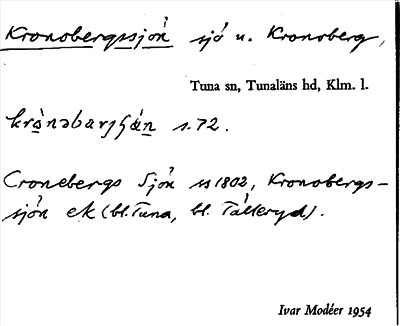 Kronobergssjön sjö n. Kronoberg,
Tuna sn, Tunaläns hd, Klm. l.
s. 72.
Cronebergs Sjön ss 1802, Kronobergs-
sjön ek (bl. Tuna, bl. Tålleryd).
Ivar Modéer 1954